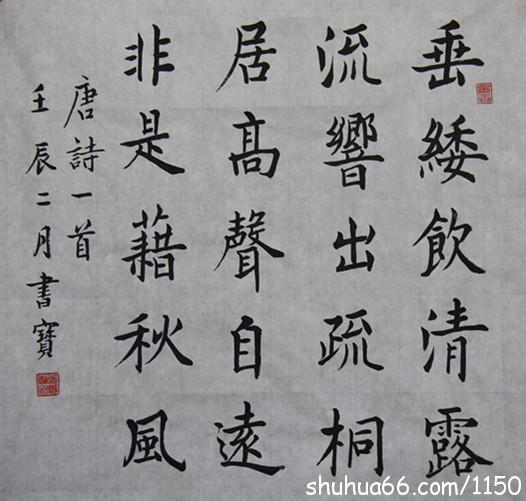 垂緌飲清露
流響出疏桐
居高聲自遠
非是藉秋風
唐詩一首
壬辰二月書寶
shuhua66.com/1150